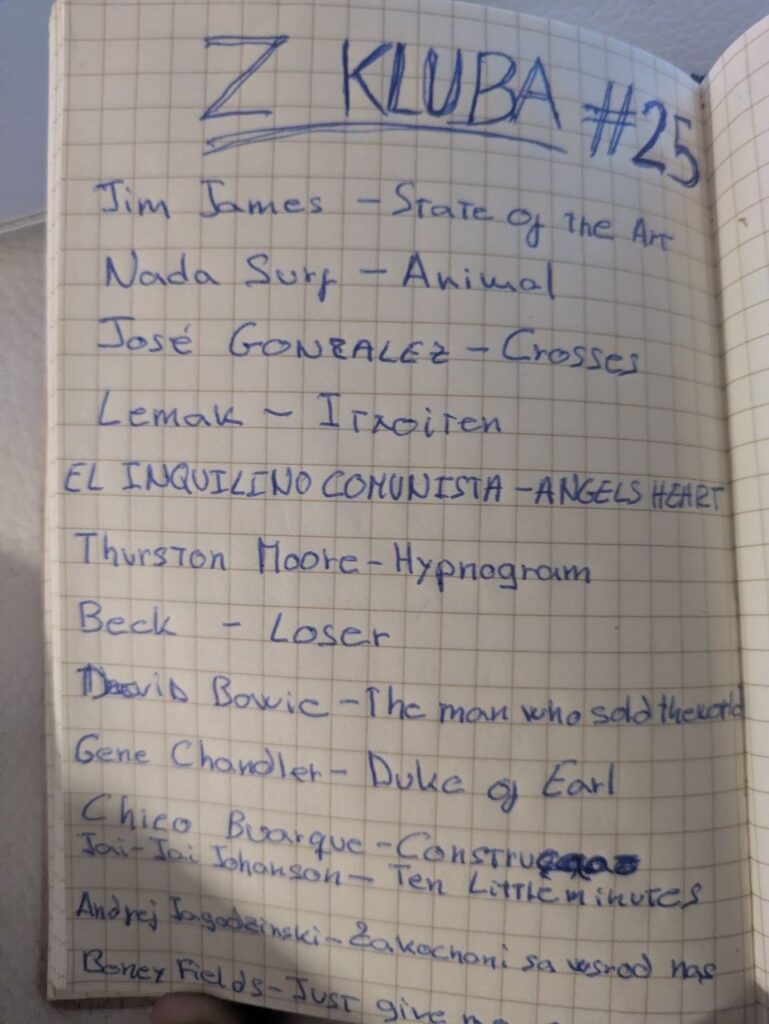 Z KLUBA #25
Jim James - State of the Art
Nada Surf - Animal
José GONZALEZ - Crosses
Lemak - Itxoiten
EL INQUILINO COMUNISTA - ANGELS HEART
Thurston Moore - Hypnogram
Beck - Loser
David Bowie - The man who sold the world
Gene Chandler - Duke of Earl
Chico Buarque - Construçao
Jai-Jai Johanson - Ten Little minutes
Andrej Jagodzinski - Zakochani sa wsrod nas
Boney Fields - Just give